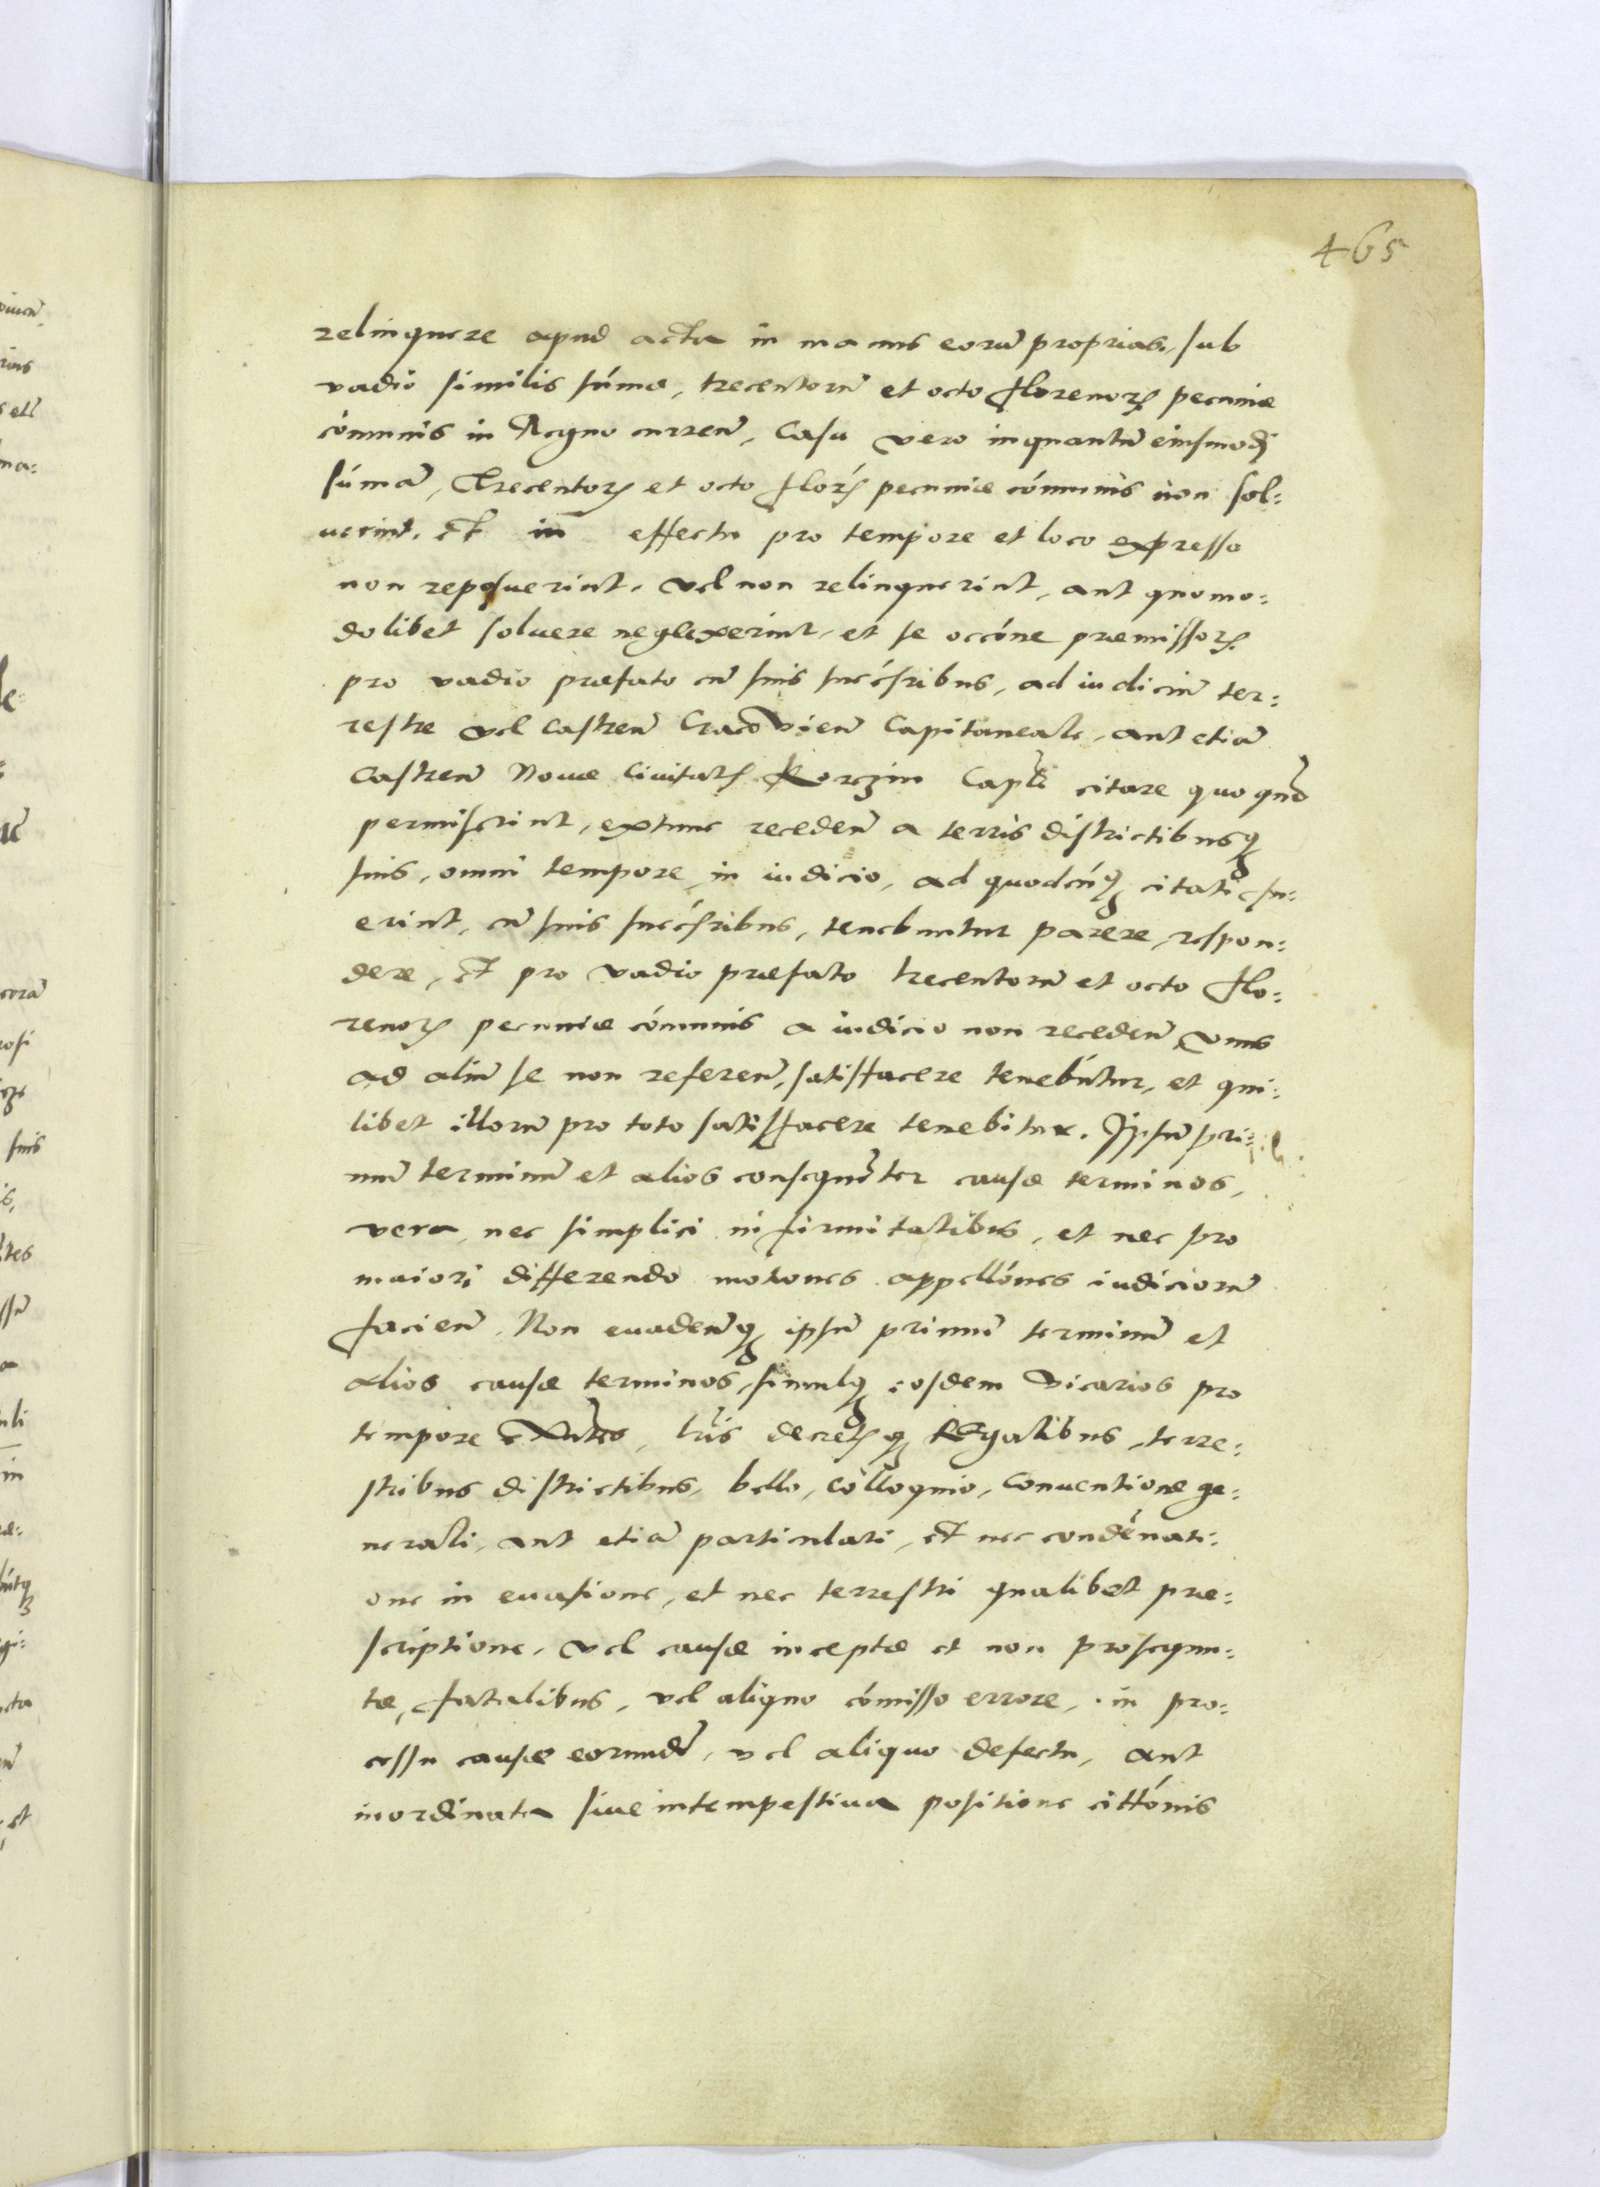 465
relinquere apud acta in manus eorũ proprias, sub
vadio similis súmæ, trecentorũ et octo florenorꝝ pecuniæ
cómunis in Regno curreñ, Casu vero inquantũ eiusmodi
súmã, Trecentorꝝ et octo florꝝ pecuniæ cómunis non sol:
uerint, Et in effectu pro tempore et loco expresso
non reposuerint, vel non relinquerint, aut quomo:
dolibet soluere neglexerint, et se occóne præmissorꝝ
pro vadio præfato cũ suis succésribus, ad iudiciũ ter:
restre vel Castreñ Cracovieñ Capitaneale, aut etiã
Castreñ Nouæ Ciuitatꝭ Korczin Capli citare quoqũo
permiserint, extunc recedeñ a terris districtibusq
suis, omni tempore in iudicio, ad quodcúq citati fu:
erint, cũ suis succésribus, tenebuntur parere, respon:
dere, Et pro vadio præfato trecentorũ et octo flo:
renorꝝ pecuniæ cómunis a iudicio non recedeñ vnus
ad aliũ se non refereñ, satisfacere tenebúntur, et qui:
libet illorũ pro toto satisfacere tenebitur. Ipsũ pri:
mũ terminũ et alios consequẽter causæ terminos,
vera, nec simplici infirmitatibus, et nec pro
maiori differendo motiones appellónes iudiciorũ
facieñ, Non euadeñq ipsũ primũ terminũ et
alios causæ terminos, simulq eosdem Vicarios pro
tempore exñtes, lris decretꝭq Regalibus, terre:
stribus districtibus, bello, colloquio, Conuentione ge:
nerali, aut etiã particulari, Et nec condẽnati:
one in euasione, et nec terrestri qualibet præ:
scriptione, vel causæ inceptæ et non prosequu:
tæ, fatalibus, vel aliquo cómisso errore, in pro:
cessu causæ eorundẽ, vel aliquo defectu, aut
inordinata siue intempestiua positione cittónis